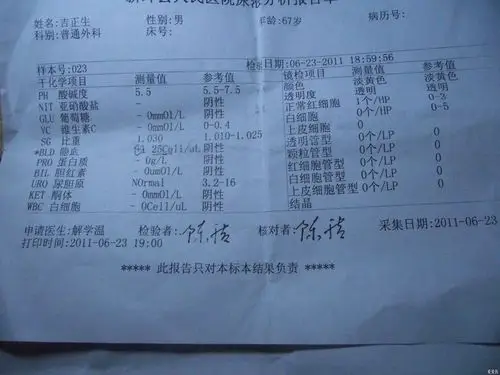 姓名:吉正生 性别:男 年龄:67岁 病历号:
科别:普通外科 床号:
样本号:023 检 日期:06-23-2011 18:59:56
干化学项目 测量值 参考值 镜检项目 测量值 参考值
PH 酸碱度 5.5 5.5-7.5 颜色 淡黄色 淡黄色
NIT 亚硝酸盐 - 阴性 透明度 透明 透明
GLU 葡萄糖 - 0mmol/L 阴性 正常红细胞 1个/HP 0-3
VC 维生素C - 0mmol/L 0-0.4 白细胞 0个/HP 0-5
SG 比重 1.030 1.010-1.025 上皮细胞 0 0
*BLD 25Cell/uL 阴性 透明管型 0个/LP 0
PRO 蛋白质 - 0g/L 阴性 颗粒管型 0个/LP 0
BIL 胆红素 - 0umol/L 阴性 红细胞管型 0个/LP 0
URO 尿胆原 Normal 3.2-16 白细胞管型 0个/LP 0
KET 酮体 - 0mmol/L 阴性 上皮细胞管型 0个/LP 0
WBC 白细胞 - 0Cell/uL 阴性 结晶
申请医生:解学温 检验者: 核对者: 采集日期:2011-06-23
打印时间:2011-06-23 19:00
***** 此报告只对本标本结果负责 *****